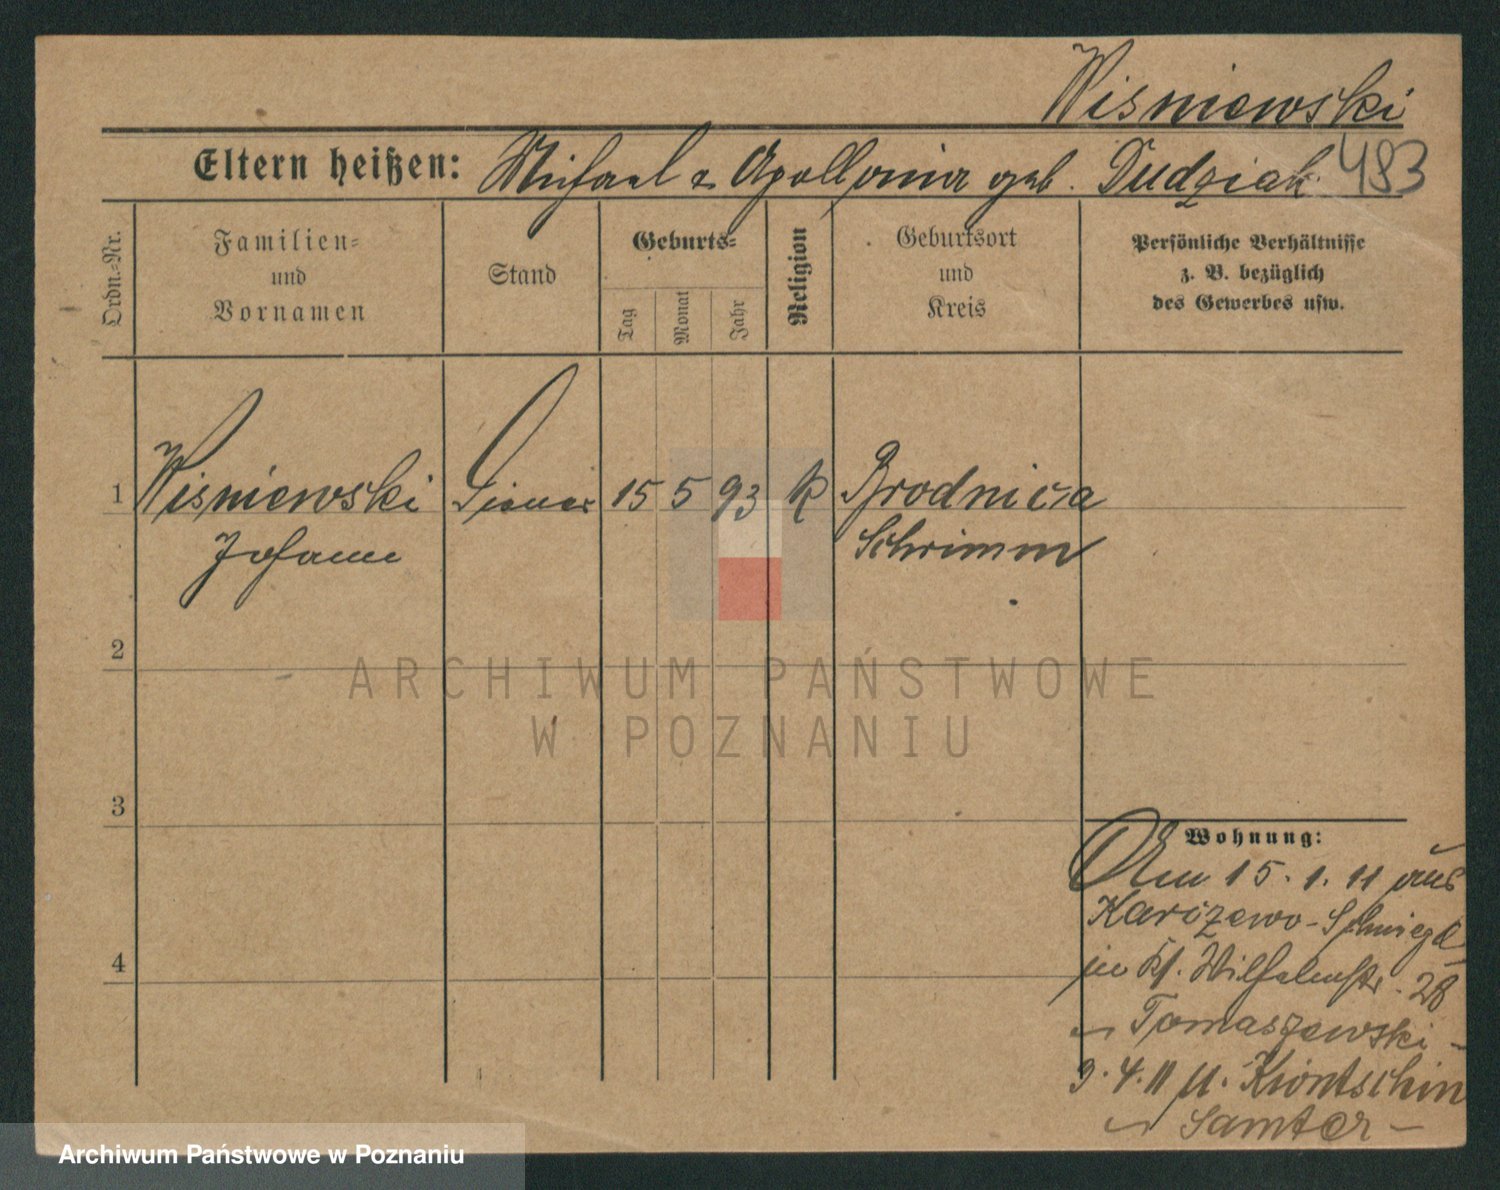 Wisniewski
Eltern heißen: Michael & Apollonia geb. Dudziak 483
Ordn.-Nr.
Familien- und Vornamen
Stand
Geburts-
Tag
Monat
Jahr
Religion
Geburtsort und Kreis
Persönliche Verhältnisse
z. B. bezüglich
des Gewerbes usw.
1 Wisniewski Diener 15 5 93 K Brodnica
Johann Schrimm
2
3
4
Wohnung:
Am 15.1.11 aus
Karczewo-Schmiegel
in Wilhelmstr. 28
Tomaszewski
9.4.11 n. Kiontschin
Samter
ARCHIWUM PAŃSTWOWE
W POZNANIU
Archiwum Państwowe w Poznaniu